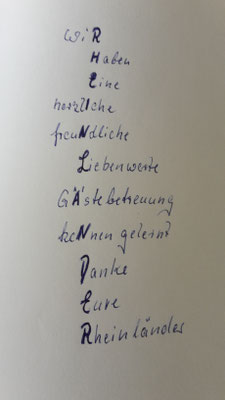 wiR
Haben
Eine
herzlIche
freuNdliche
Liebenwerte
GÄstebetreuung
keNnen gelernt
Danke
Eure
Rheinländer